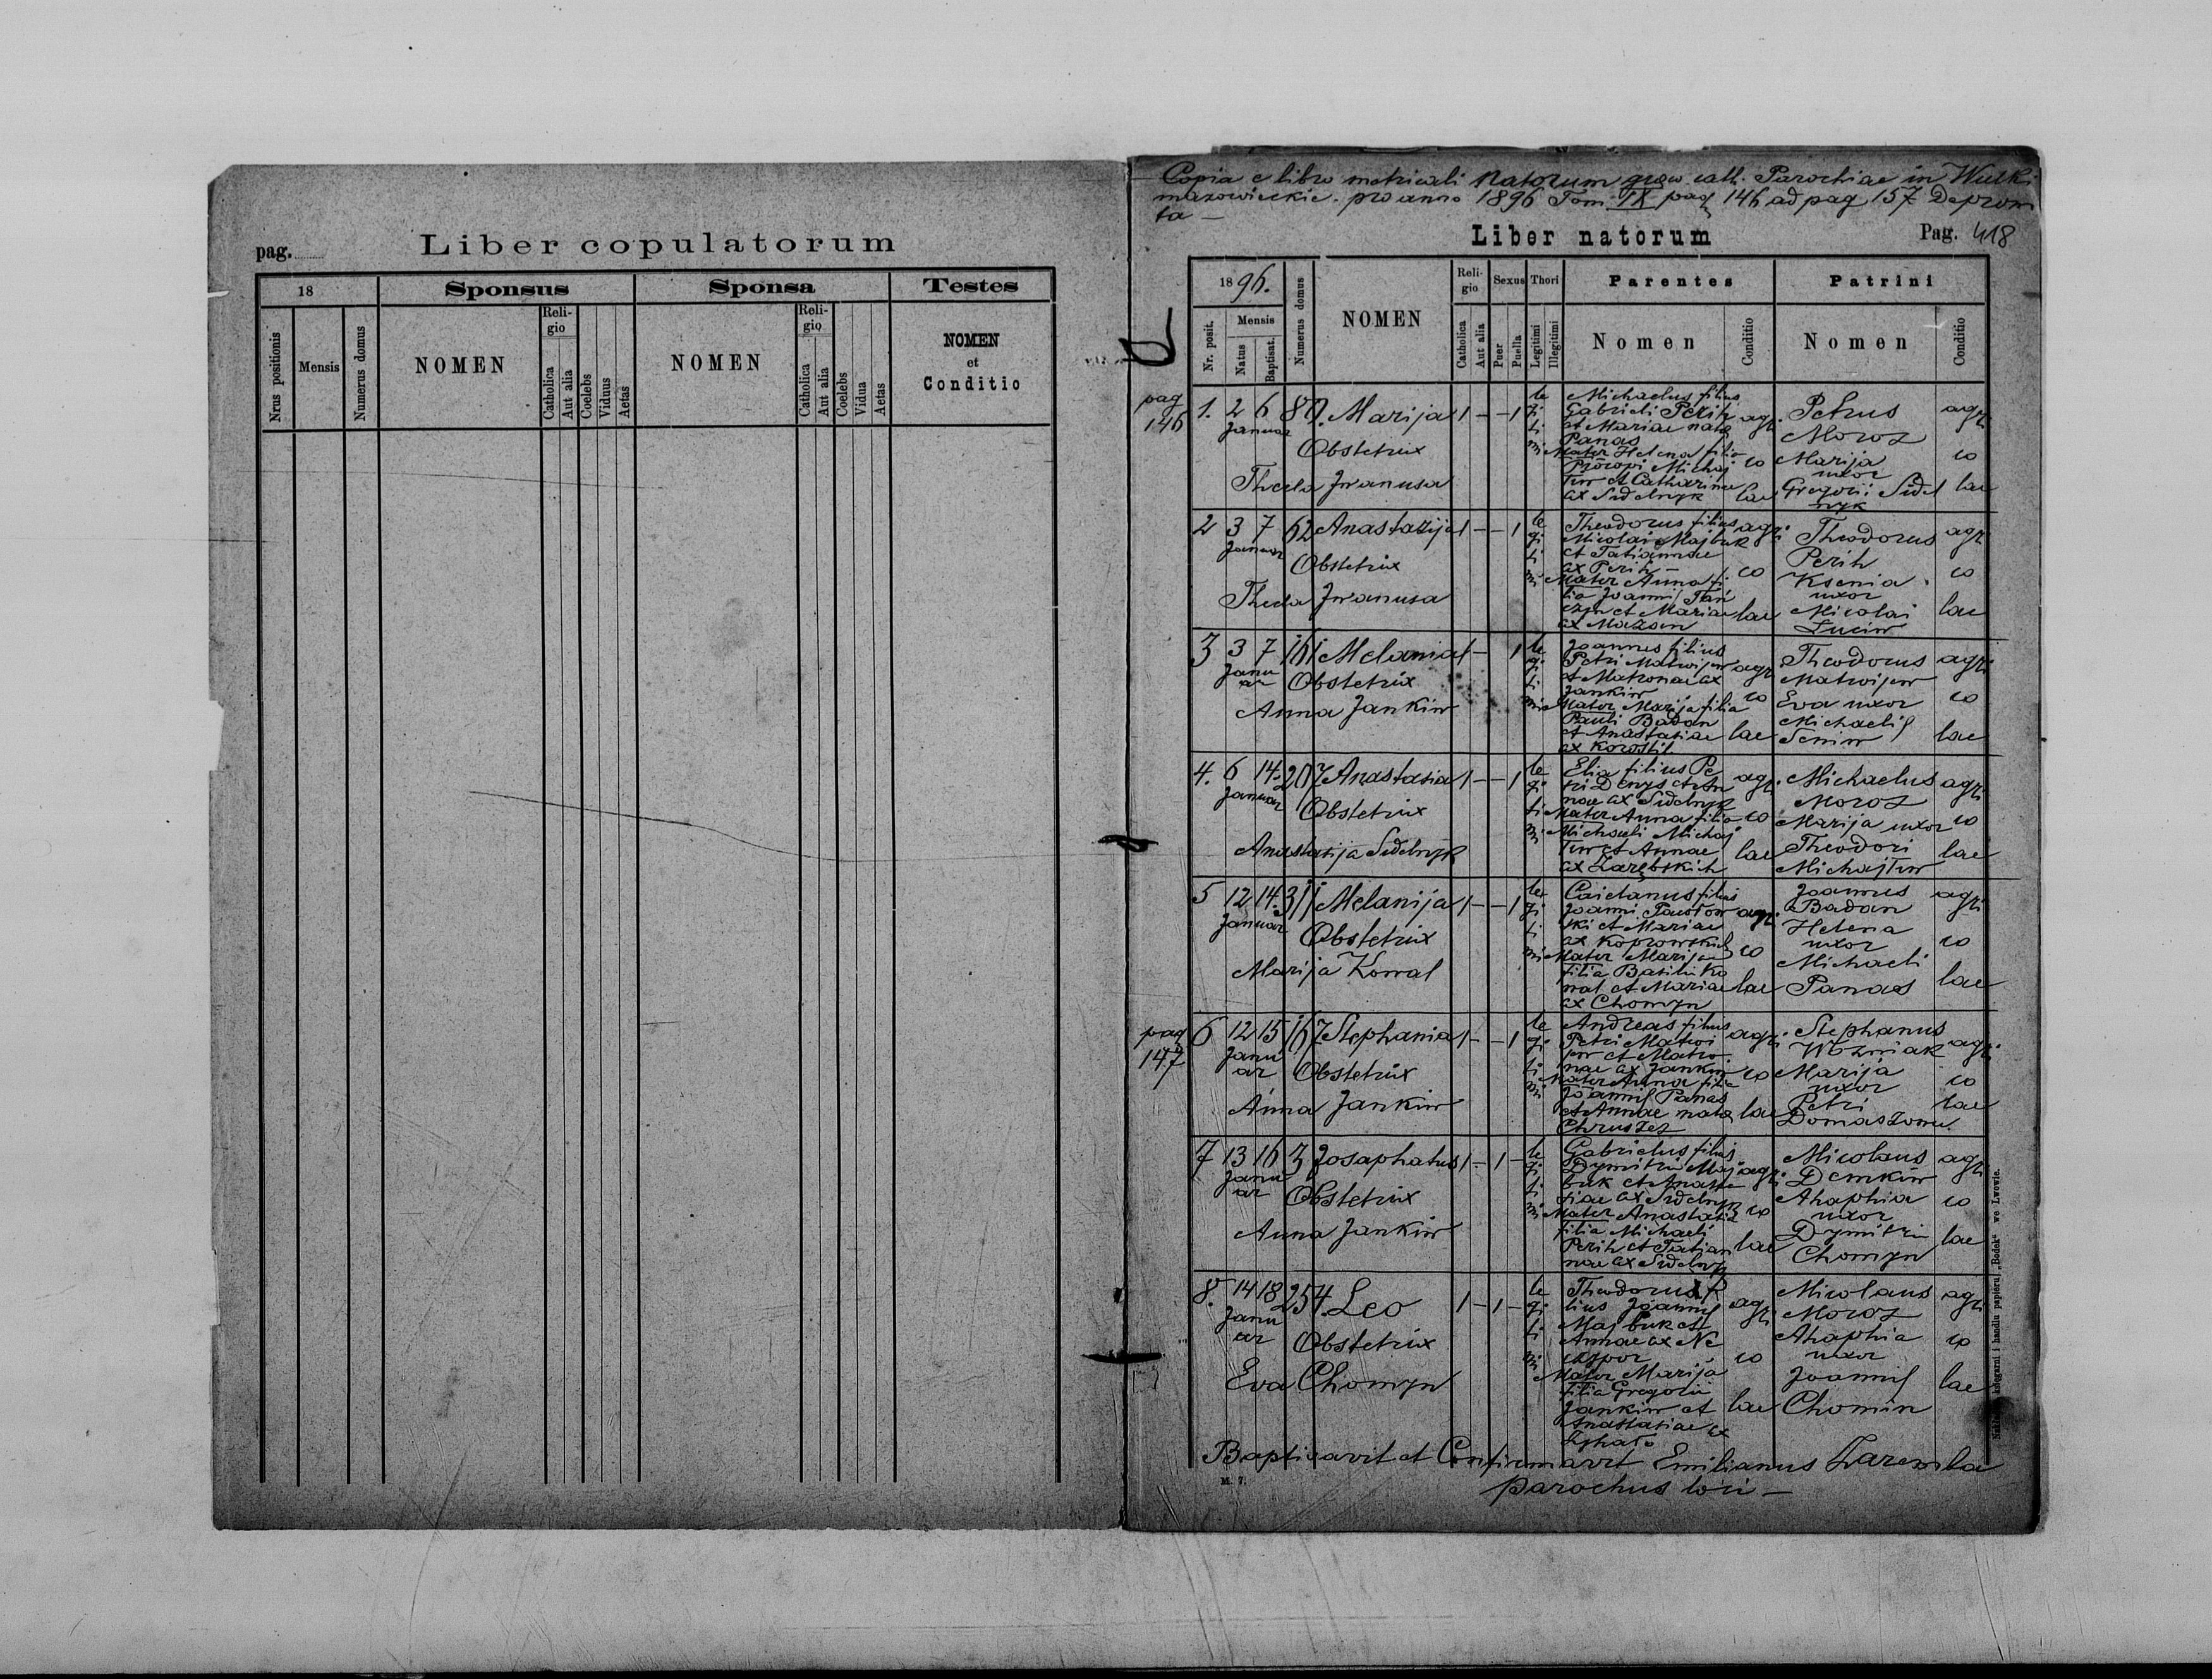 pag.
Liber copulatorum
18
Sponsus
Sponsa
Testes
Nrus positionis
Mensis
Numerus domus
NOMEN
Religio
Catholica
Aut alia
Coelebs
Viduus
Aetas
NOMEN
Religio
Catholica
Aut alia
Coelebs
Vidua
Aetas
NOMEN
et
Conditio
Copia e libro metricali Natorum graeco cath. Parochiae in Wulki
mazowieckie. pro anno 1896 Tom IX pag 146 ad pag 157 Deprom
ta —
Liber natorum
Pag. 418
1896.
Nr. posit.
Mensis
Natus
Baptisat.
Numerus domus
NOMEN
Religio
Catholica
Aut alia
Sexus
Puer
Puella
Thori
Legitimi
Illegitimi
Parentes
Nomen
Conditio
Patrini
Nomen
Conditio
pag
146
1. 2 6 89. Marija 1 — — 1
Januar
Obstetrix
Thecla Iwanusa
legitimi
Michaelus filius
Gabrieli Perih
et Mariae nata
Panas
Mater Helena filia
Procopi Michaj
łiw et Catharinae
ex Sidelnyk
agri
co
lae
Petrus
Moroz
Marija
uxor
Gregorii Sidel
nyk
agri
co
lae
2 3 7 62 Anastazija 1 — — 1
Januar
Obstetrix
Thecla Iwanusa
legitimi
Theodorus filius
Nicolai Majbuk
et Tatiannae
ex Perih —
Mater Anna fi
lia Joanni
et Mariae
ex Mazan
agri
co
lae
Theodorus
Perih
Ksenia
uxor
Nicolai
Luciw
agri
co
lae
3 3 7 161 Melania 1 — 1
Janu
ar
Obstetrix
Anna Jankiw
legitimi
Joannes filius
Petri Matwijew
et Matronae ex
Jankiw
Mater Marija filia
Pauli Badan
et Anastasiae
ex Korostil
agri
co
lae
Theodorus
Matwijew
Eva uxor
Michaelis
Seniw
agri
co
lae
4. 6 14. 207 Anastasia 1 — — 1
Januar
Obstetrix
Anastasija Sidelnyk
legitimi
Elia filius Pe
tri Denys et An
nae ex Sidelnyk
Mater Anna filia
Michaeli Michaj
łiw et Annae
ex Zarębskich
agri
co
lae
Michaelus
Moroz
Marija uxor
Theodori
Michajłiw
agri
co
lae
5 12 14. 311 Melanija 1 — — 1
Januar
Obstetrix
Marija Kowal
legitimi
Caietanus filius
Joanni
ski et Mariae
ex Koprowskich
Mater Marija
filia Basilii Ko
wal et Mariae
ex Chomyn
agri
co
lae
Joannes
Badan
Helena
uxor
Michaeli
Panas
agri
co
lae
pag
147
6 12 15 167 Stephania 1 — — 1
Janu
ar
Obstetrix
Anna Jankiw
legitimi
Andreas filius
Petri Matwi
jew et Matro
nae ex Jankiw
Mater Anna filia
Joannis Panas
et Annae nata
agri
co
lae
Stephanus
Wozniak
Marija
uxor
Petri
agri
co
lae
7 13 16 3 Josaphatus 1 — 1 —
Janu
ar
Obstetrix
Anna Jankiw
legitimi
Gabrielus filius
Dymitrii Maj
buk et Anasta
siae ex Sidelnyk
Mater Anastasia
filia Michaeli
Perih et Tatian
nae ex Sidelnyk
agri
co
lae
Nicolaus
Demkiw
Ahaphia
uxor
Dymitri
Chomyn
agri
co
lae
8. 14 18 254. Leo 1 — 1 —
Janu
ar
Obstetrix
Eva Chomyn
legitimi
Theodorus fi
lius Joannis
Majbuk et
Annae ex Ne
czypor
Mater Marija
filia Gregorii
Jankiw et
Anastasiae ex
agri
co
lae
Nicolaus
Moroz
Ahaphia
uxor
Joannis
Chomin
agri
co
lae
Baptisavit et Confirmavit Emilianus Zaremba
parochus loci —
M. 7.
księgarni i handlu papieru „Bodek" we Lwowie.